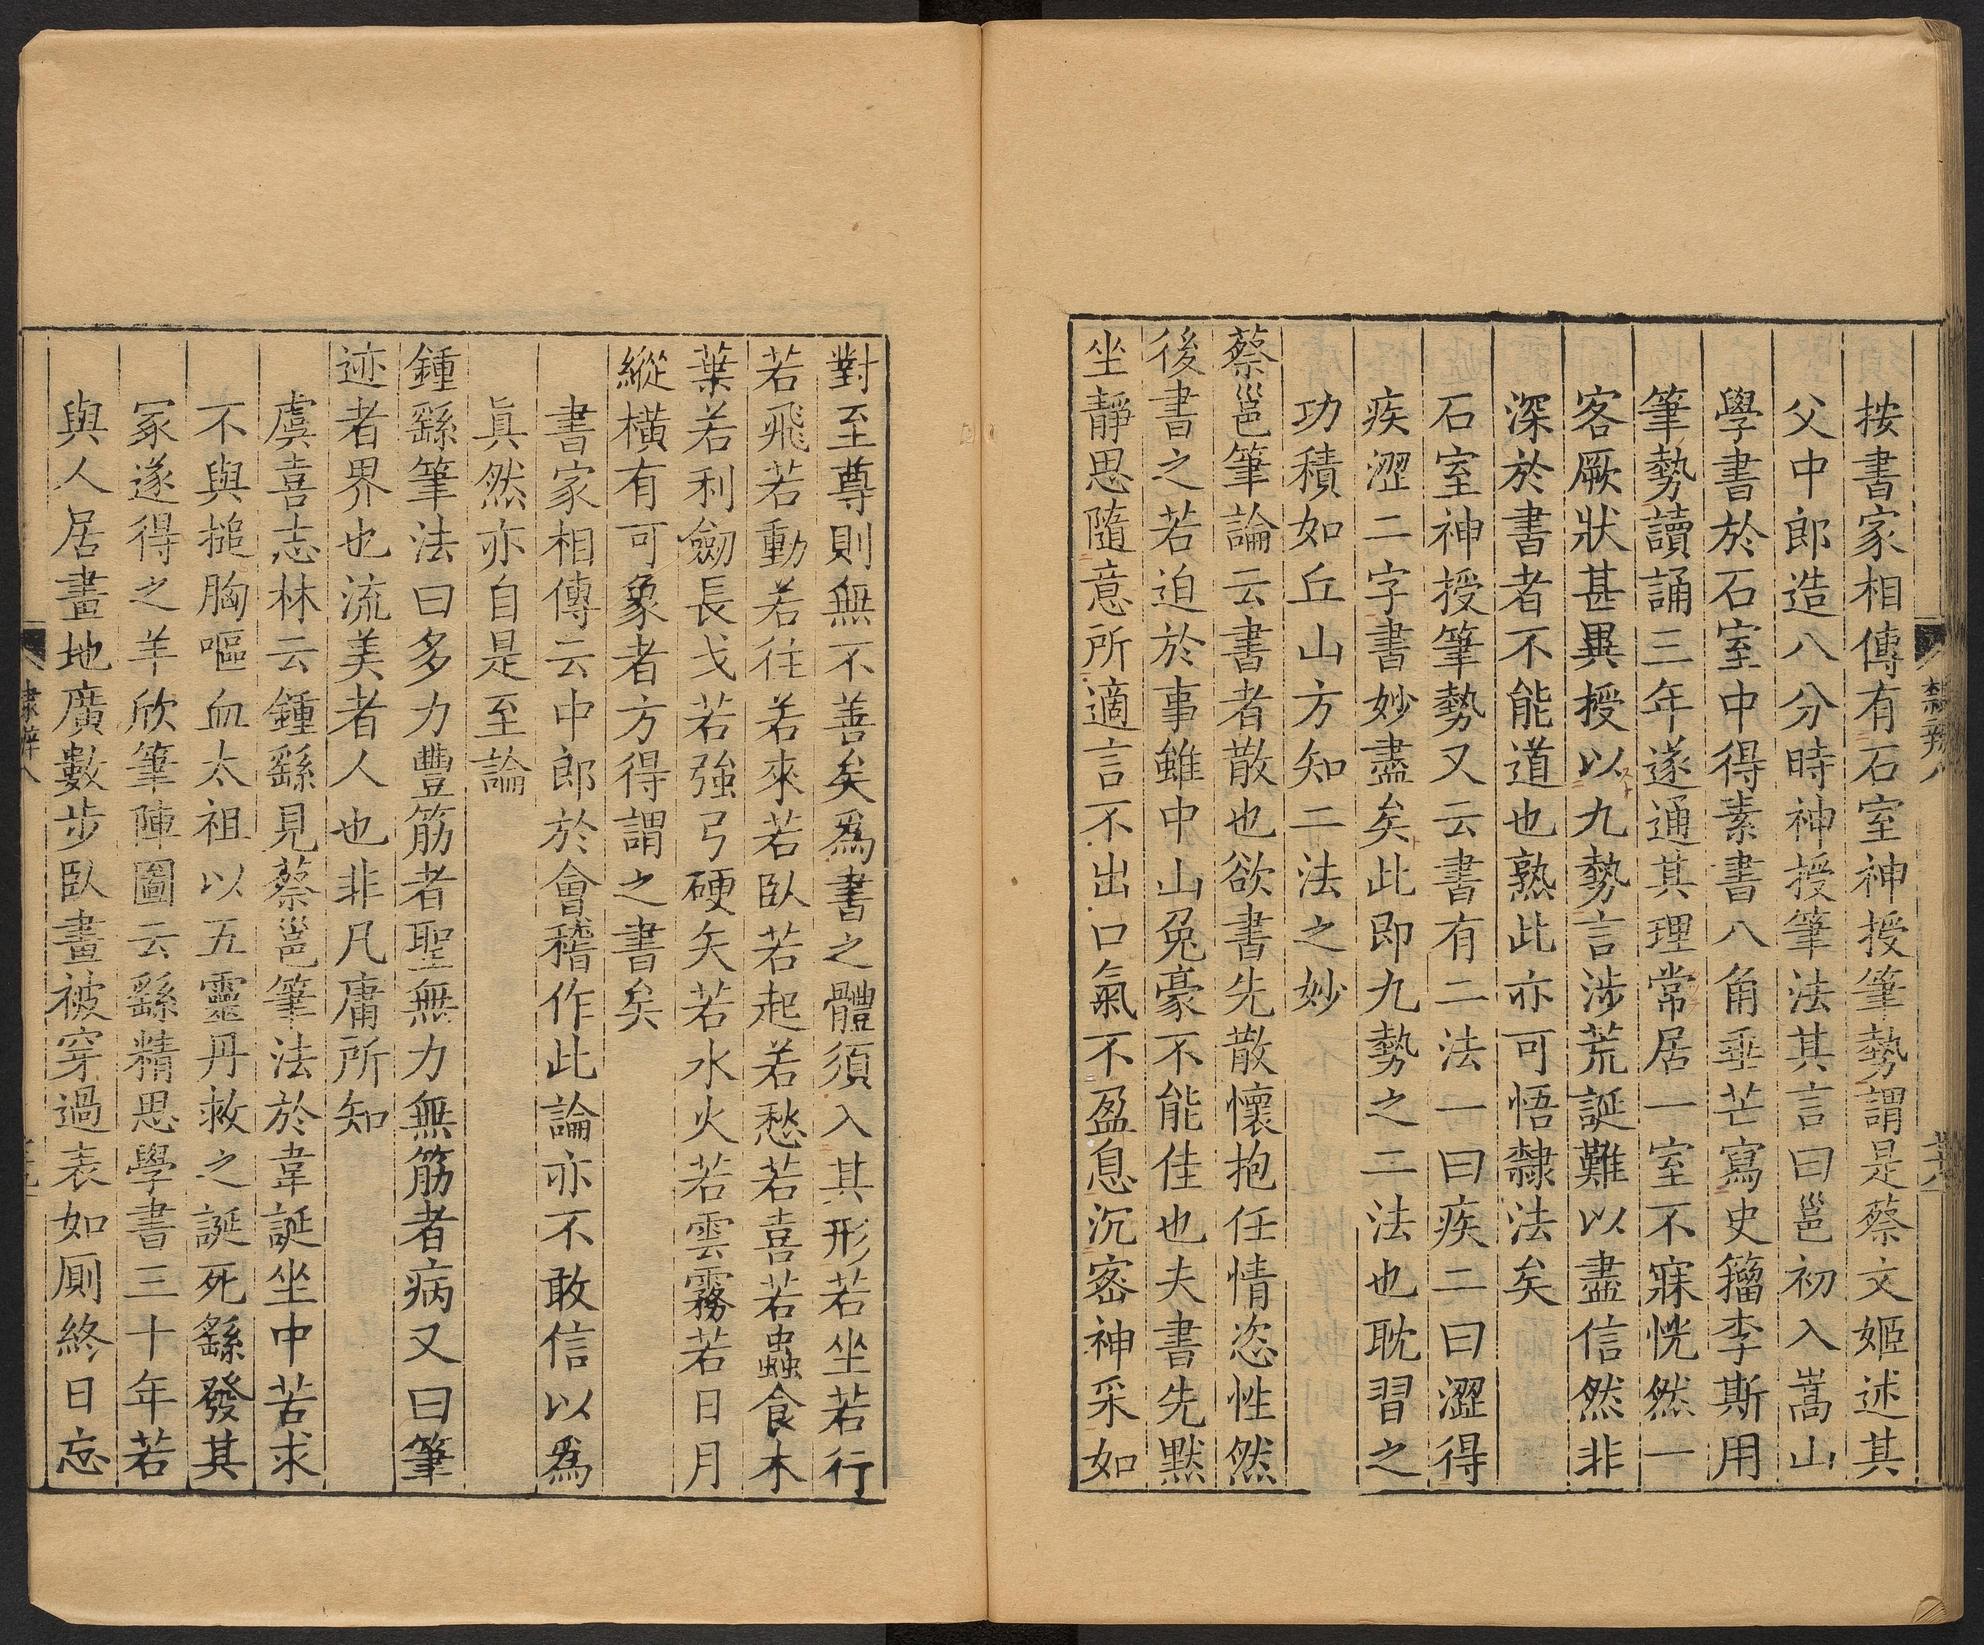 按書家相傳有石室神授筆勢謂是蔡文姬述其
父中郎造八分時神授筆法其言曰邕初入嵩山
學書於石室中得素書八角垂芒寫史籀李斯用
筆勢讀誦三年遂通其理常居一室不寐恍然一
客厥狀甚異授以九勢言涉荒誕難以盡信然非
深於書者不能道也熟此亦可悟隸法矣
石室神授筆勢又云書有二法一曰疾二曰澀得
疾澀二字書妙盡矣此即九勢之二法也耽習之
功積如丘山方知二法之妙
蔡邕筆論云書者散也欲書先散懷抱任情恣性然
後書之若迫於事雖中山兔豪不能佳也夫書先默
坐靜思隨意所適言不出口氣不盈息沉密神采如
對至尊則無不善矣爲書之體須入其形若坐若行
若飛若動若往若來若臥若起若愁若喜若蟲食木
葉若利劒長戈若強弓硬矢若水火若雲霧若日月
縱橫有可象者方得謂之書矣
書家相傳云中郎於會稽作此論亦不敢信以爲
眞然亦自是至論
鍾繇筆法曰多力豐筋者聖無力無筋者病又曰筆
迹者界也流美者人也非凡庸所知
虞喜志林云鍾繇見蔡邕筆法於韋誕坐中苦求
不與搥胸嘔血太祖以五靈丹救之誕死繇發其
冢遂得之羊欣筆陣圖云繇精思學書三十年若
與人居畫地廣數步臥畫被穿過表如厠終日忘
隸辨八